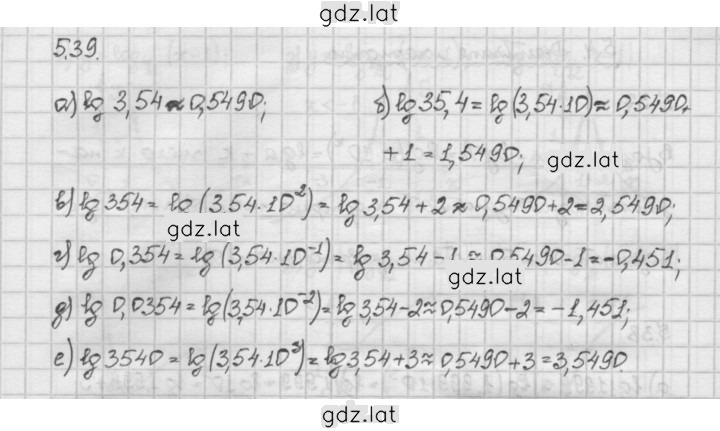 gdz.lat
5.39.
а) lg 3,54 ≈ 0,5490; б) lg 35,4 = lg(3,54·10) ≈ 0,5490+
+1 = 1,5490;
gdz.lat
в) lg 354 = lg(3,54·10²) = lg 3,54 + 2 ≈ 0,5490+2 = 2,5490;
gdz.lat
г) lg 0,354 = lg(3,54·10⁻¹) = lg 3,54 - 1 ≈ 0,5490-1 = -0,451;
gdz.lat
д) lg 0,0354 = lg(3,54·10⁻²) = lg 3,54-2 ≈ 0,5490-2 = -1,451;
е) lg 3540 = lg(3,54·10³) = lg 3,54+3 ≈ 0,5490+3 = 3,5490.
gdz.lat